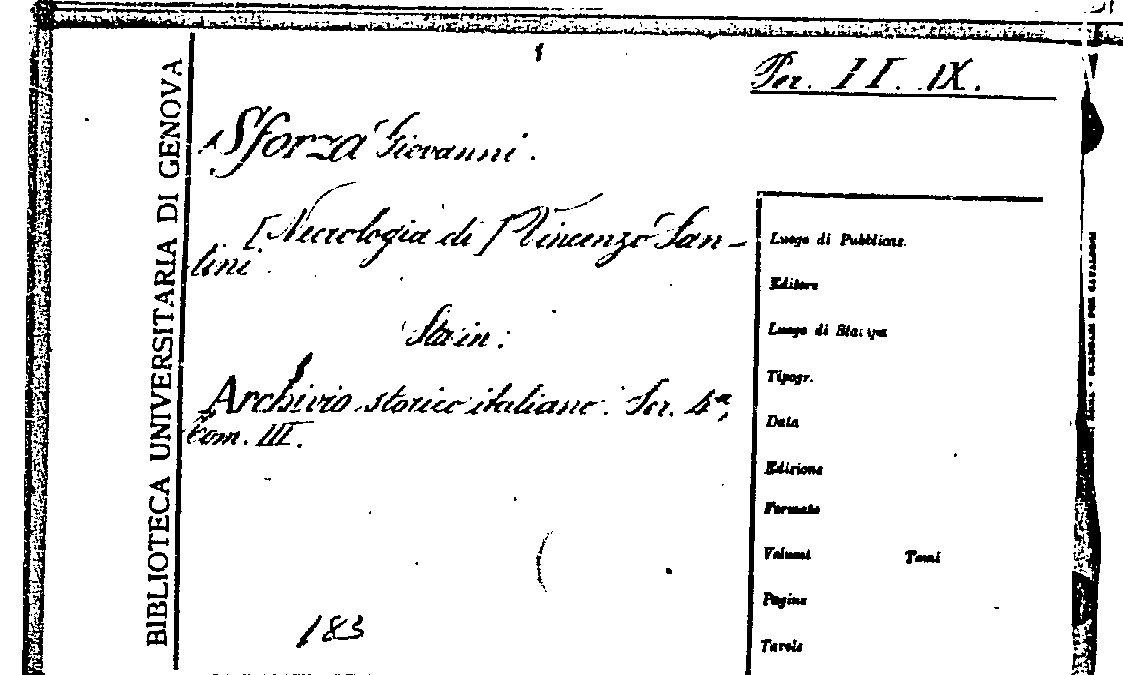 BIBLIOTECA UNIVERSITARIA DI GENOVA
Per. II. IX.
Sforza Giovanni.
[Necrologia di] Vincenzo San-
tini
Sta in:
Archivio storico italiano. Ser. 4ª,
tom. III.
183
Luogo di Pubblicaz.
Editore
Luogo di Stampa
Tipogr.
Data
Edizione
Formato
Volumi Tomi
Pagine
Tavole